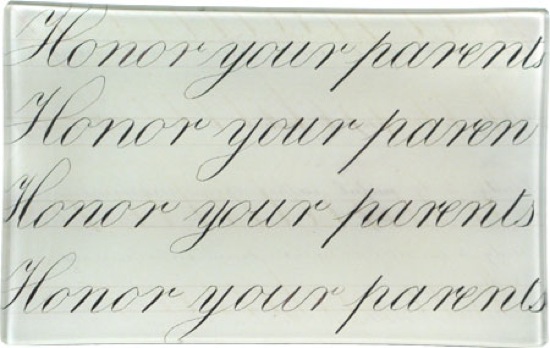 Honor your parents
Honor your paren
Honor your parents
Honor your parents